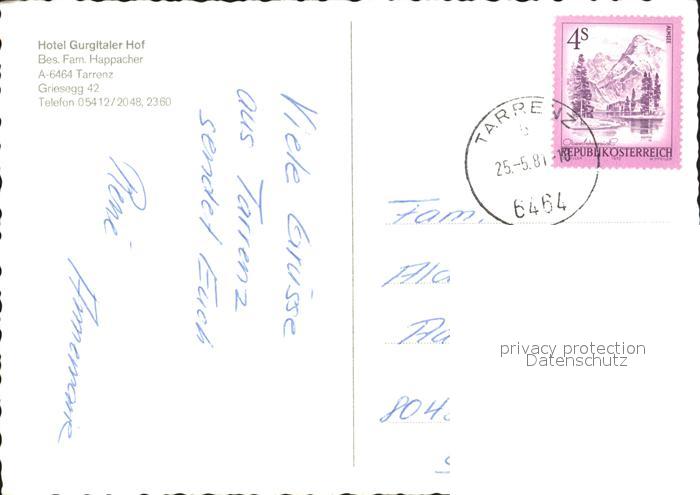 Hotel Gurgltaler Hof
Bes. Fam. Happacher
A-6464 Tarrenz
Griesegg 42
Telefon 05412/2048, 2360
Viele Grüsse
aus Tarrenz
sendet Euch
René
Annemarie
4S
ALMSEE
REPUBLIK ÖSTERREICH
TARRENZ
b
25.-5.81-18
6464
Fam.
804
privacy protection
Datenschutz